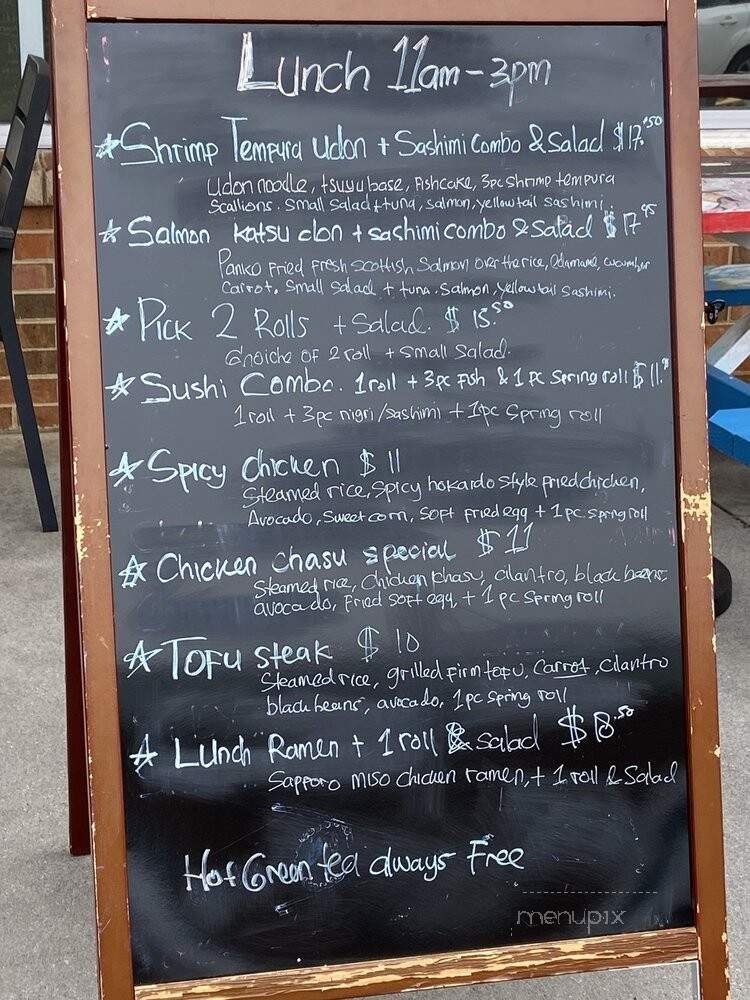 Lunch 11am-3pm
Shrimp Tempura udon + Sashimi Combo & Salad $17.50
Udon noodle, tsuyu base, Fishcake, 3pc shrimp tempura
Scallions. Small Salad + tuna, salmon, yellowtail sashimi.
Salmon Katsu don + sashimi combo & Salad $17.95
Panko Fried Fresh Scottish Salmon over the rice, Edamame, cucumber
Carrot. Small Salad + tuna. Salmon, yellowtail Sashimi.
Pick 2 Rolls + Salad. $15.50
Choiche of 2 roll + small salad.
Sushi Combo. 1roll + 3pc Fish & 1 pc Spring roll $11.
1roll + 3pc nigri/sashimi + 1pc Spring roll
Spicy Chicken $11
Steamed rice, Spicy hokaido Style Fried chicken,
Avocado, Sweet corn, Soft Fried egg + 1pc springroll
Chicken chasu special $11
Steamed rice, Chicken chasu, cilantro, black beans,
avocado, Fried Soft egg, + 1pc Spring roll
Tofu steak $10
Steamed rice, grilled Firm tofu, Carrot, Cilantro
black beans, avocado, 1pc Spring roll
Lunch Ramen + 1 roll & salad .50
Sapporo miso chicken ramen, + 1 roll & Salad
Hot Green tea always Free
menupix